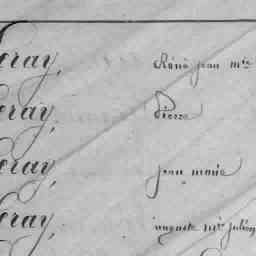 eray, René jean mie
eray, Pierre
eray, jean marie
eray, auguste mie julien